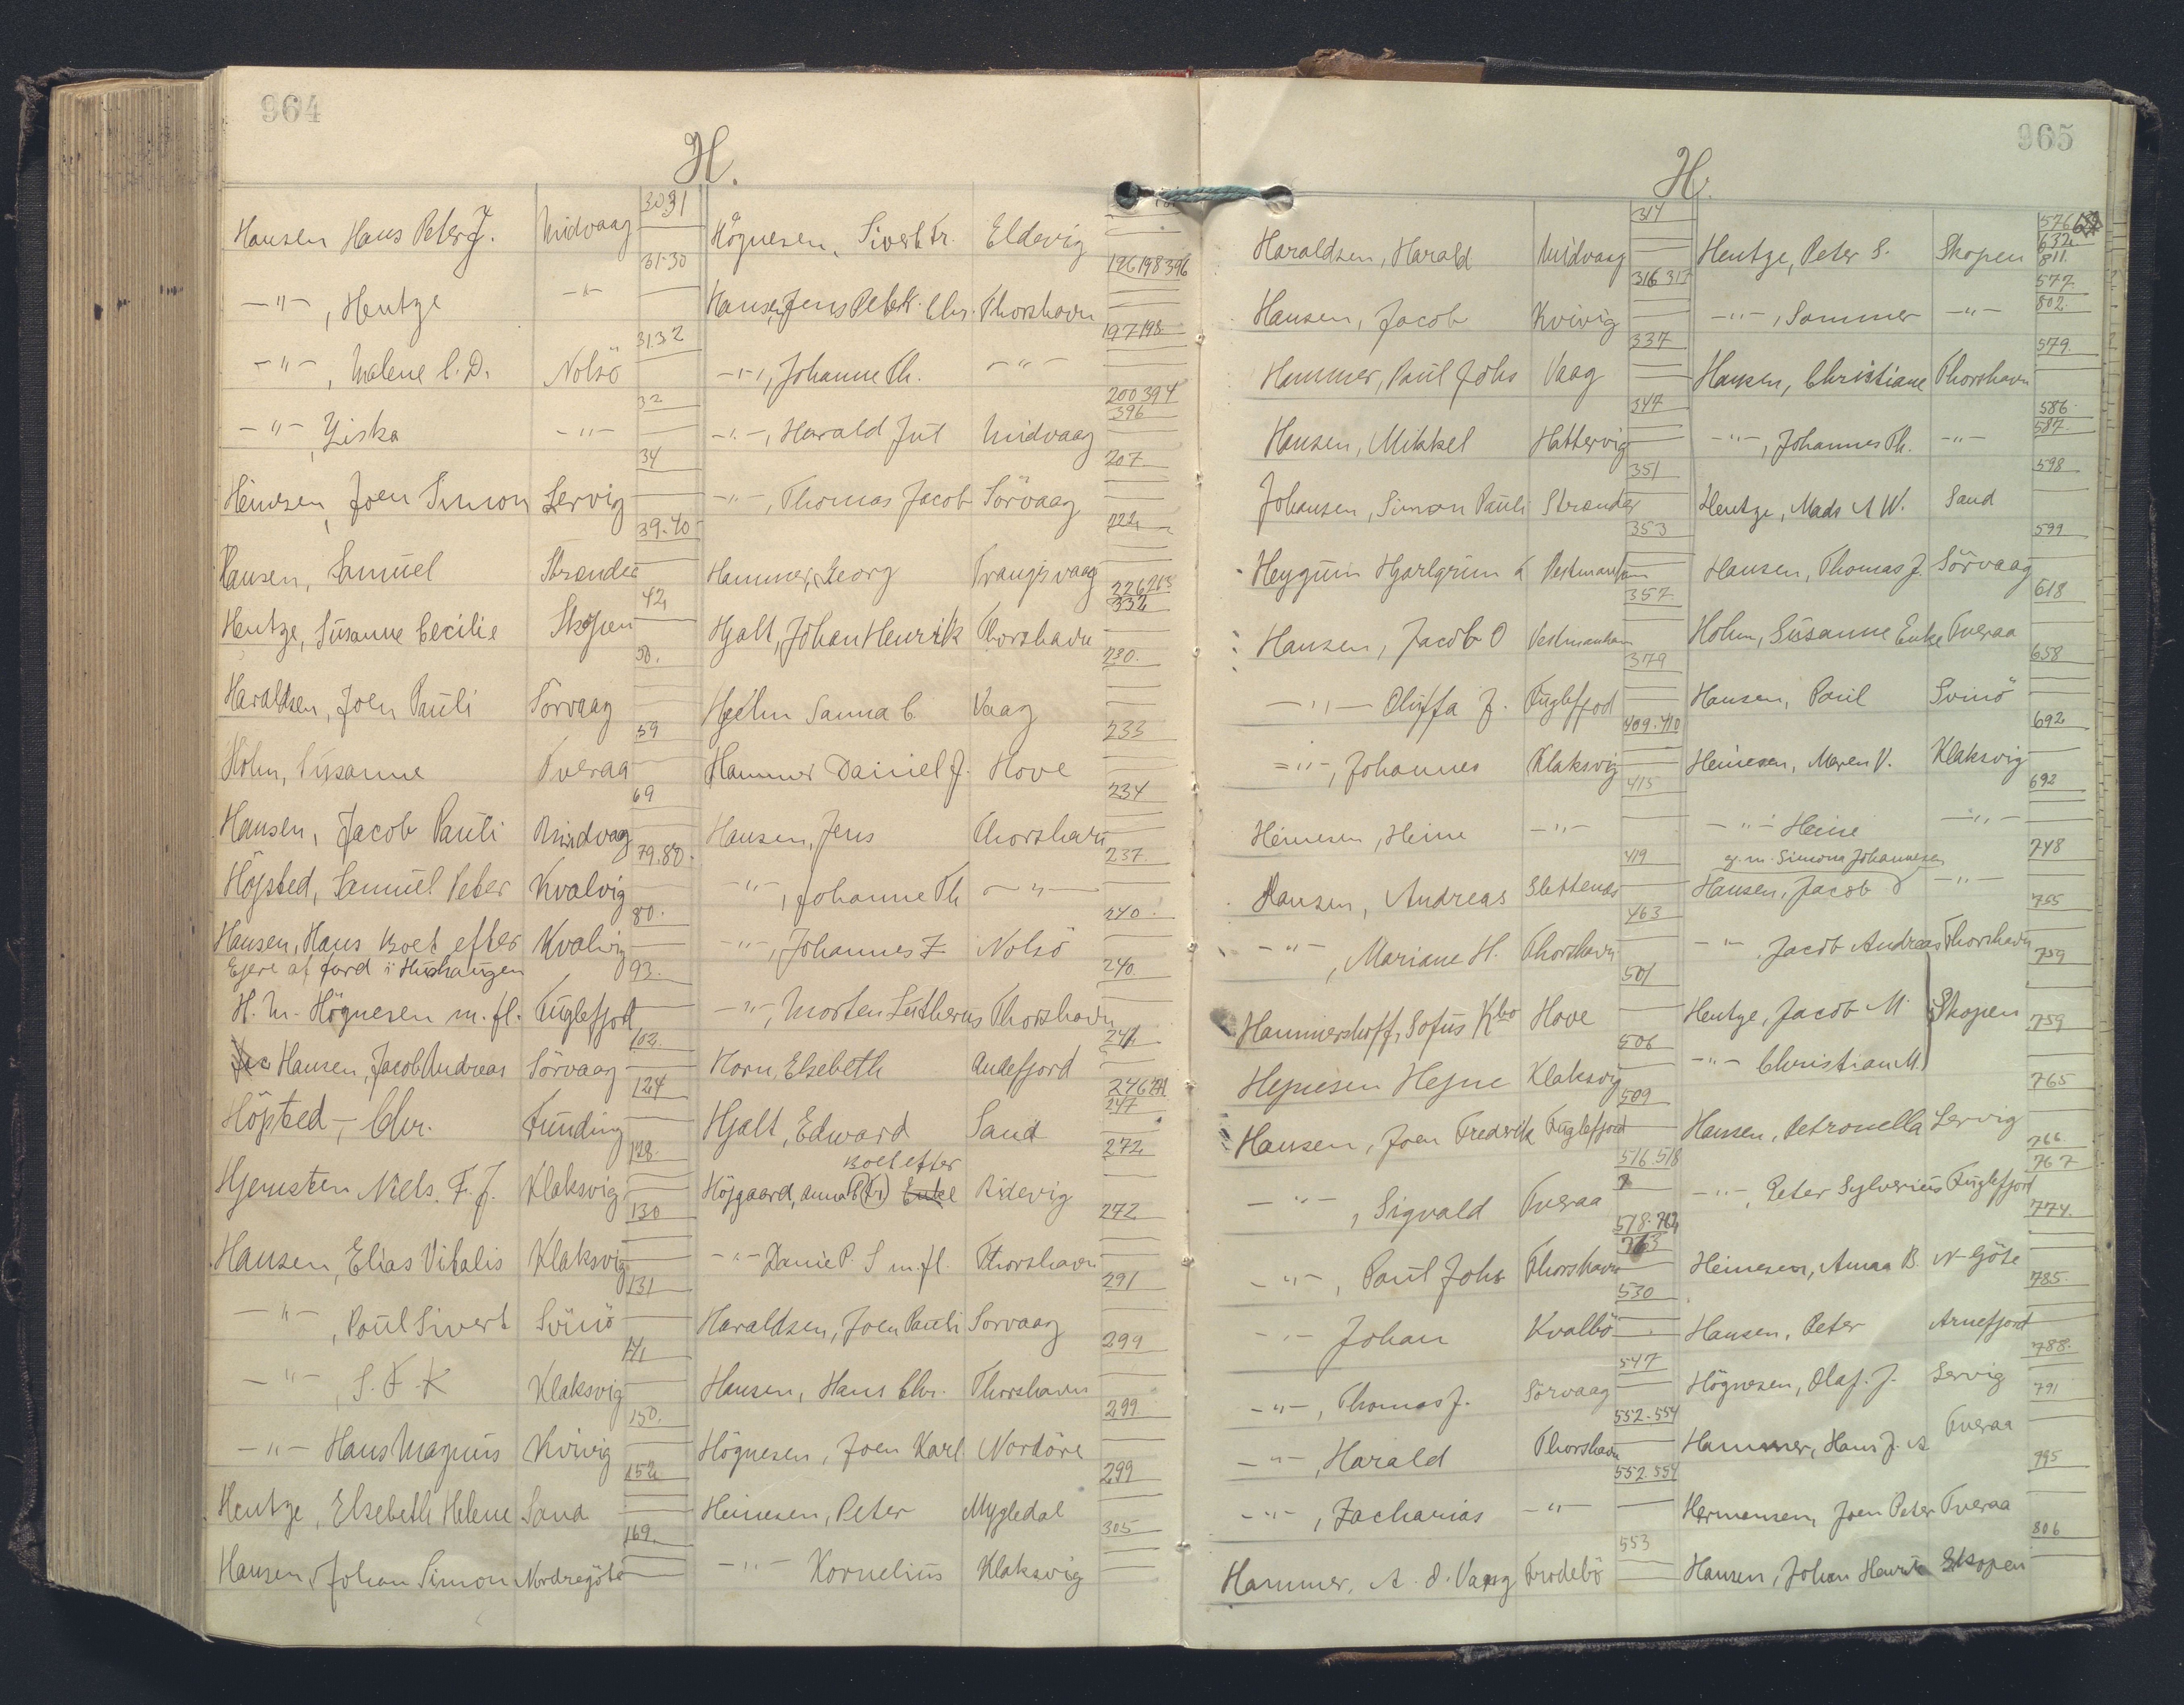 964
H.
Hansen Hans Peter J. Midvaag 30 31
-"-, Hentze -"- 31-30
-"-, Malene C. D. Nolsö 31.32
-"-, Ziska -"- 32
Heinesen, Joen Simon Lervig 34
Hansen, Samuel Strender 39.40
Hentze, Susanne Cecilie Skopen 42
Haraldsen, Joen Pauli Sörvaag 50.
Holm, Susanne Tveraa 59
Hansen, Jacob Pauli Midvaag 69
Höjsted, Samuel Peter Kvalvig 79.80.
Hansen, Hans Boet efter Kvalvig 80.
Ejere af Jord i Hushaugen
H. M. Högnesen m. fl. Fuglefjord 93.
Hansen, Jacob Andreas Sörvaag 102.
Höjsted, Chr. Funding 124
Hjemsten Niels. F. J. Klaksvig 128.
Hansen, Elias Vitalis Klaksvig 130
-"-, Poul Sivert Svinö 131
-"-, S. F. K Klaksvig 141
-"- Hans Magnus Kvivig 150.
Hentze, Elsebeth Helene Sand 152
Hansen, Johan Simon Nordregöte 169.
Högnesen, Sivert Fr. Eldevig
Hansen, Jens Peter H. Chr. Thorshavn 126 198 396
-"-, Johanne Th. -"- 197 198.
-"-, Harald Jul Midvaag 200 394 396
-"-, Thomas Jacob Sörvaag 207
Hammer, Georg Trangisvaag 222
Hjalt, Johan Henrik Thorshavn 226 265 332
Hjelm Sanna C Vaag 230.
Hammer Daniel J. Hove 233
Hansen, Jens Thorshavn 234
-"-, Johanne Th -"- 237
-"-, Johannes Z Nolsö 240.
-"-, Morten Lutherus Thorshavn 240.
Horn, Elsebeth Andefjord 241
Hjalt, Edward Sand 246 271 247
Boet efter
Höjgaard, Anna C (Fr) Enke Ridevig 272
-"- Daniel P. S m.fl. Thorshavn 272
Haraldsen, Joen Pauli Sorvaag 291
Hansen, Hans Chr. Thorshavn 299
Högnesen, Joen Karl Nordöre 299.
Heinesen, Peter Mygledal 299
-"- Kornelius Klaksvig 305
965
H.
Haraldsen, Harald Midvaag 314
Hansen, Jacob Kvivig 316 317
Hammer, Paul Johs Vaag 337
Hansen, Mikkel Hattervig 347
Johansen, Simon Pauli Strender 351
Heygum Hjarlgrim L Vestmanhavn 353
Hansen, Jacob O Vestmanhavn 357.
-"- Oluffa J. Fuglefjord 379
-"-, Johannes Klaksvig 409.410
Heinesen, Heine -"- 415
Hansen, Andreas Slettenæs 419
-"-, Mariane H. Thorshavn 463
Hammershoff, Sofus Kbo Hove 501
Hejnesen Hejne Klaksvig 506
Hansen, Joen Fredrik Fuglefjord 509
-"-, Sigvald Tveraa 516.518
-"-, Paul Johs Thorshavn 518-762 763
-"- Johan Kvalbö 530
-"-, Thomas J. Sörvaag 547
-"-, Harald Thorshavn 552-554
-"-, Zacharias -"- 552.554
Hammer, A. d. Vaag Frodebö 553
Hentze, Peter S. Skopen 576 632 811.
-"-, Sammer -"- 577. 802.
Hansen, Christiane Thorshavn 579.
-"-, Johannes Th. -"- 586. 587.
Hentze, Mads A W. Sand 598
Hansen, Thomas J. Sörvaag 599
Holm, Susanne Enke Tveraa 618
Hansen, Poul Svinö 658
Heinesen, Maren V. Klaksvig 692
-"- Heine -"- 692
ej. m. Simona Johannesen
Hansen, Jacob -"- 748
-"- Jacob Andreas Thorshavn 755
Hentze, Jacob M. Skopen 759
-"- Christian M. 759
Hansen, Petronella Lervig 765
-"-, Peter Sylverius Fuglefjord 766. 767
Heinesen, Anna B. N-Göte 774.
Hansen, Peter Arnefjord 785.
Högnesen, Olaf. J. Lervig 788.
Hammer, Hans J. A Tveraa 791
Hermansen, Joen Peter Tveraa 795
Hansen, Johan Henrik Skopen 806